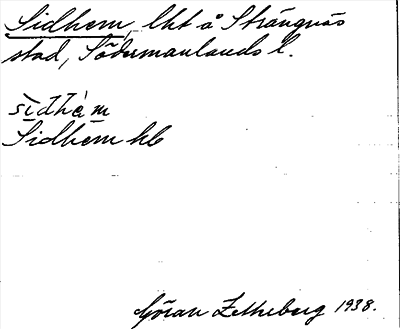 Sidhem, lht å Strängnäs
stad, Södermanlands l.
sìdhèm
Sidhem hb
Göran Zetheberg 1938.